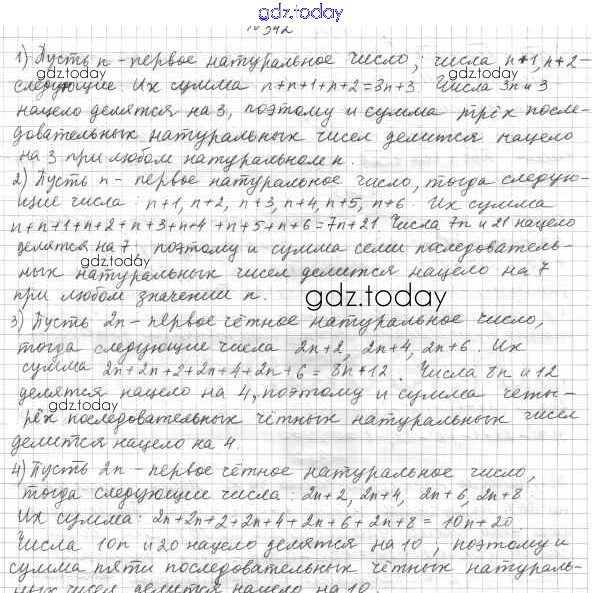 gdz.today
№ 942
1) Пусть n - первое натуральное число, числа n+1, n+2 -
gdz.today
следующие. Их сумма n+n+1+n+2=3n+3. Числа 3n и 3
нацело делятся на 3, поэтому и сумма трёх после-
довательных натуральных чисел делится нацело
на 3 при любом натуральном n.
2) Пусть n - первое натуральное число, тогда следую-
щие числа: n+1, n+2, n+3, n+4, n+5, n+6. Их сумма
n+n+1+n+2+n+3+n+4+n+5+n+6=7n+21. Числа 7n и 21 нацело
делятся на 7, поэтому и сумма семи последователь-
gdz.today
ных натуральных чисел делится нацело на 7
при любом значении n.
gdz.today
3) Пусть 2n - первое чётное натуральное число,
тогда следующие числа 2n+2, 2n+4, 2n+6. Их
сумма 2n+2n+2+2n+4+2n+6=8n+12. Числа 8n и 12
делятся нацело на 4, поэтому и сумма четы-
gdz.today
рёх последовательных чётных натуральных чисел
делится нацело на 4.
4) Пусть 2n - первое чётное натуральное число,
тогда следующие числа: 2n+2, 2n+4, 2n+6, 2n+8
Их сумма: 2n+2n+2+2n+4+2n+6+2n+8= 10n+20.
Числа 10n и 20 нацело делятся на 10, поэтому и
сумма пяти последовательных чётных натураль-
ных чисел делится нацело на 10.